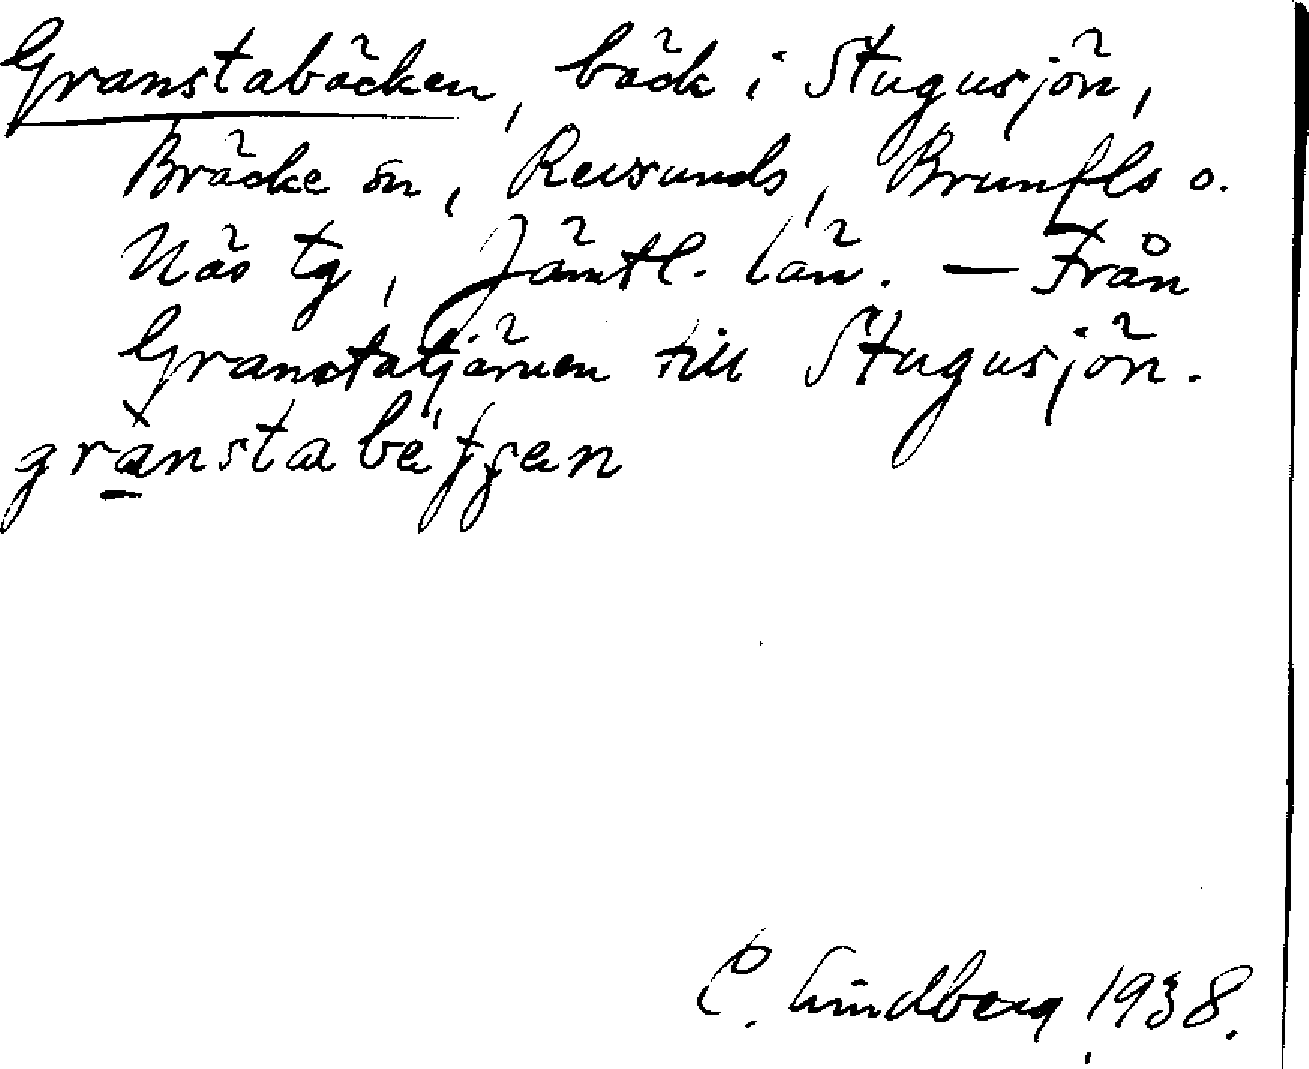 Granstabäcken, bäck i Stugusjön,
Bräcke sn, Revsunds, Brunflo o.
Näs tg, Jämtl. län. – Från
Granstatjärnen till Stugusjön.
C. Lindberg, 1938.